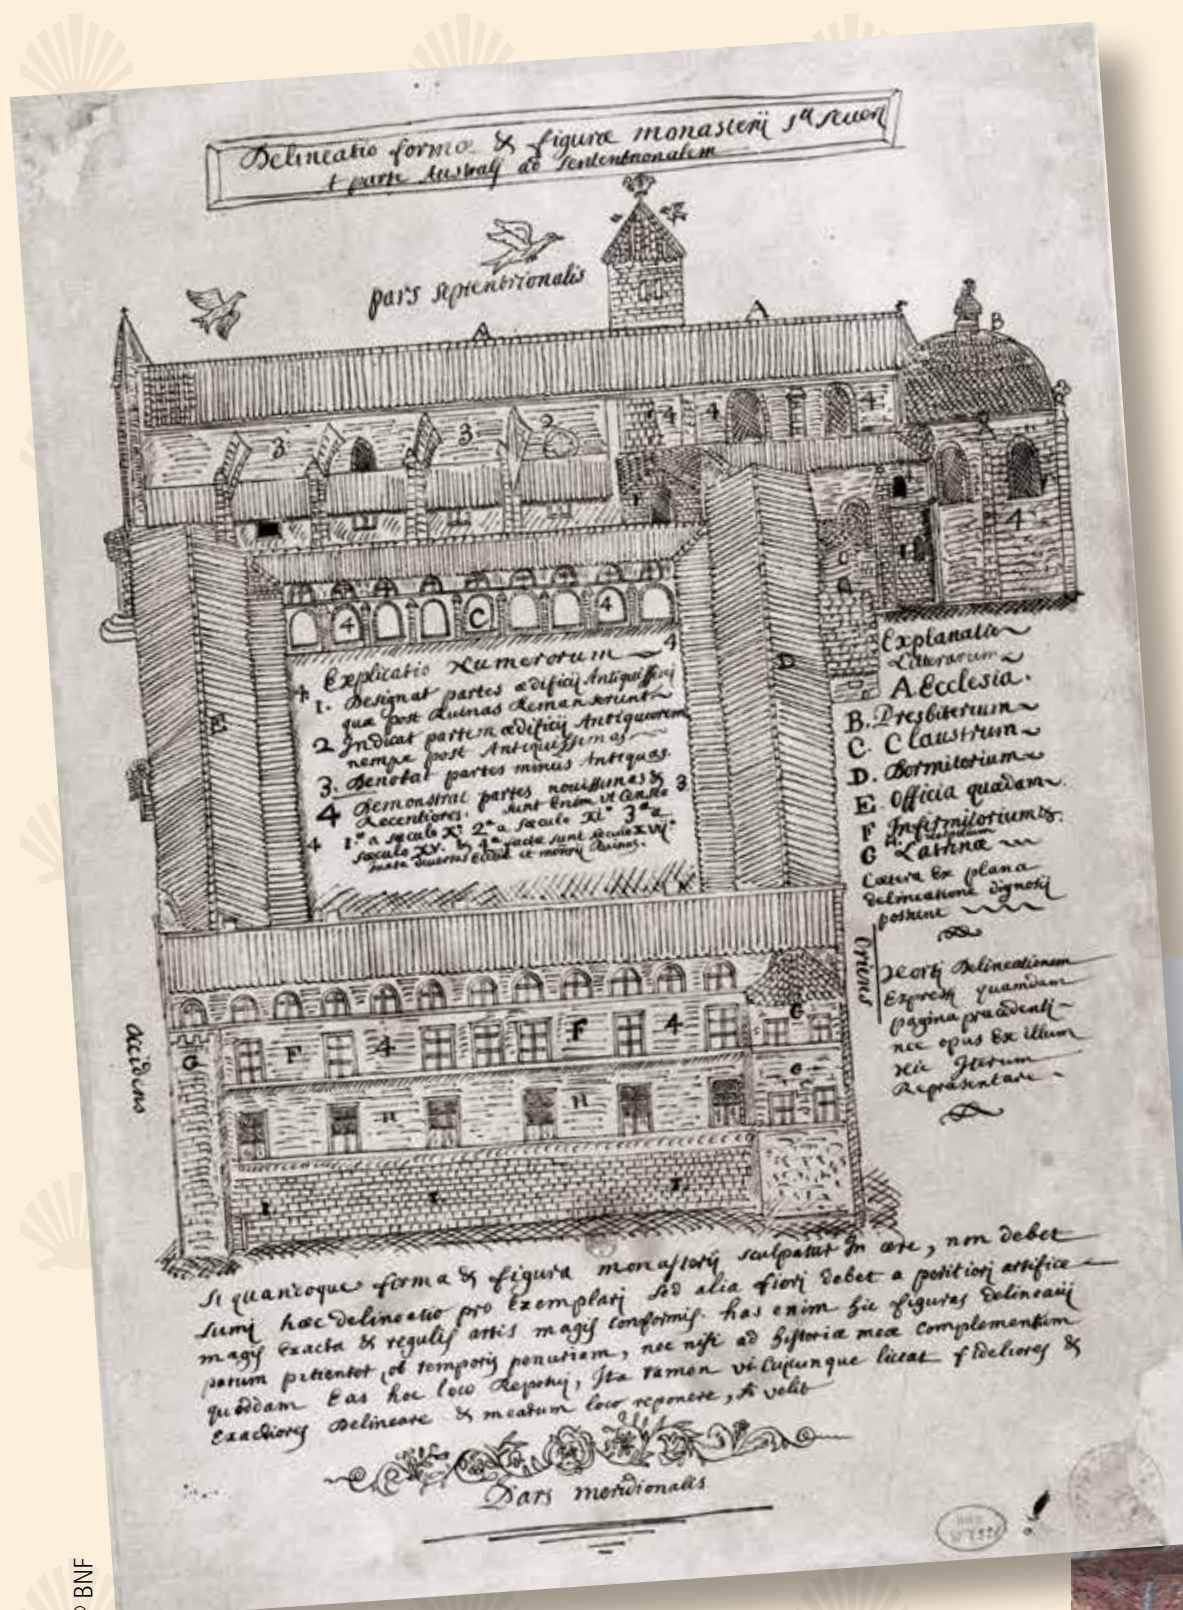 Delineatio formæ & figuræ monasterij Sti Severi
A parte Australj ad Septentrionalem
pars septentrionalis
A
A
B
3
3
2
4
4
4
4
1
4
C
4
D
E
Explicatio Numerorum
4
4
1. Designat partes ædificij Antiquissimj
quæ post Ruinas Remanserunt
2 Indicat partem ædificij Antiquiorem
nempe post Antiquissimas
3. Denotat partes minus Antiquas.
4 Demonstrat partes novissimas &
Recentiores. sunt Enim ut
3
4
1.a a sæculo X.o 2.a a sæculo XI.o 3.a a
sæculo XV. & 4.a factæ sunt sæculo XVII.o
Explanatio
Litterarum
A Ecclesia.
B. Presbiterium
C. Claustrum
D. Dormitorium
E. Officia quædam
F Infirmitorium &.
G Latrinæ
Cætera Ex plana
delineatione dignoscj
possunt
Oriens
Horti Delineationem
Expressj quamdam
pagina præcedentj
nec opus Ex illum
hic Iterum
Repræsentare
Occidens
G
F
4
F
4
G
G
H
H
1
1.
1.
Si quandoque forma & figura monasterij sculpatur In ære, non debet
sumj hæc delineatio pro Exemplarj sed alia fierj debet a peritiorj artifice
magis Exacta & regulis artis magis conformis. has enim hic figuras delineavj
parum patienter, ob temporis penuriam, nec nisi ad historiæ meæ complementum
quoddam Eas hoc loco Reposuj, Ita tamen ut Cuicunque liceat fideliores &
Exactiores Delineare & mearum loco reponere, si velit
Pars meridionalis
BNF